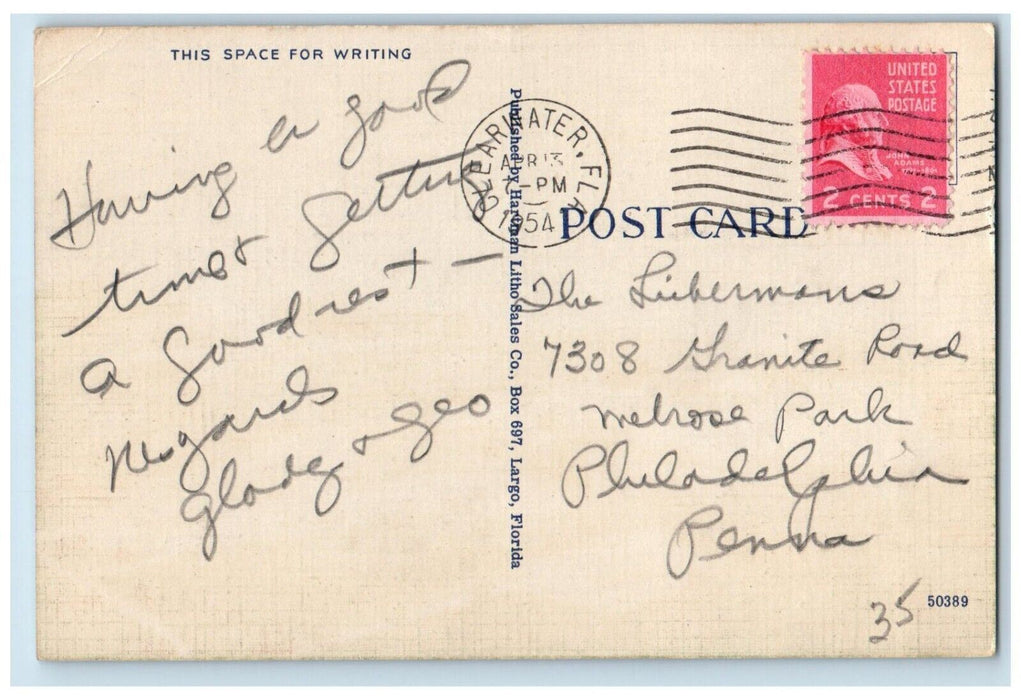 THIS SPACE FOR WRITING
Having a good
time & getting
a good rest —
Regards
Gladys & Geo
Published by Hartman Litho Sales Co., Box 697, Largo, Florida
CLEARWATER, FLA.
APR 13
PM
1954
UNITED
STATES
POSTAGE
JOHN
ADAMS
2 CENTS 2
POST CARD
The Liebermans
7308 Granite Road
Melrose Park
Philadelphia
Penna
35
50389